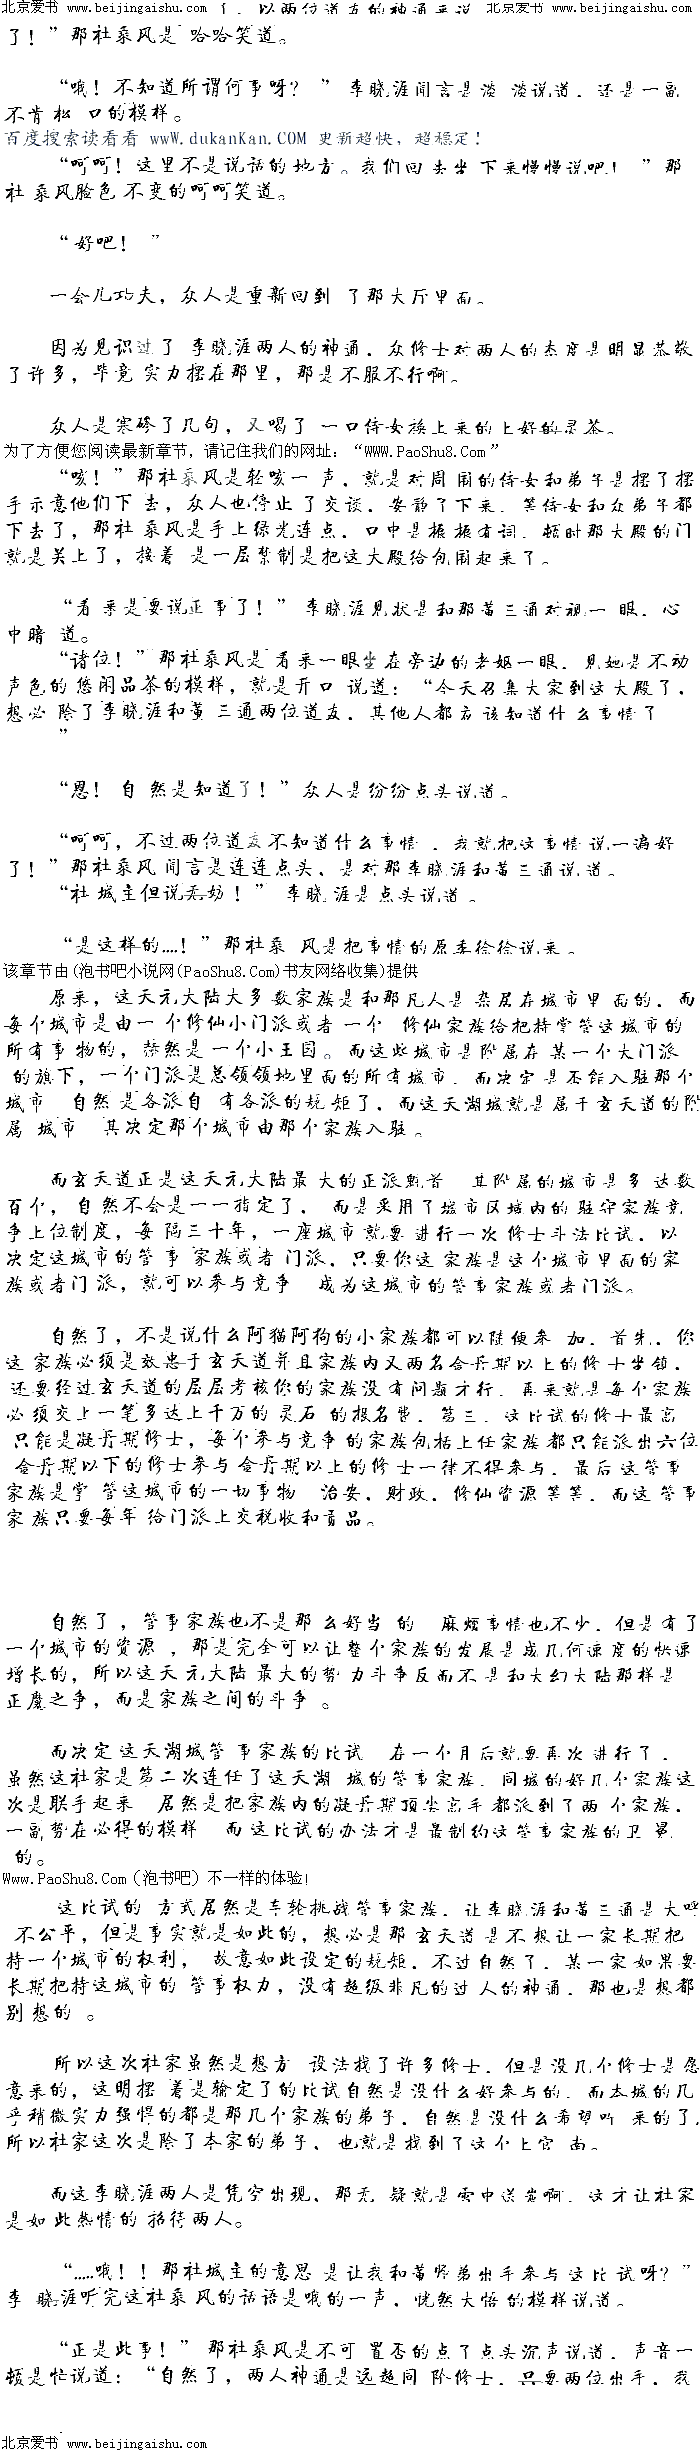 北京爱书 www.beijingaishu.com 了，以两位道友的神通来说 北京爱书 www.beijingaishu.com
了！”那杜乘风是 哈哈笑道。
“哦！不知道所谓何事呀？ ” 李晓涯闻言是淡 淡说道，还是一副
不肯 松 口的模样。
百度搜索读看看 wwW.dukanKan.COM 更新超快，超稳定！
“呵呵！这里不是说话的 地方。我们回 去坐 下来慢慢说吧！ ”那
杜 乘风脸色 不变的呵呵笑道。
“好吧！ ”
一会儿功夫，众人是重新回到 了那大厅里面。
因为见识过了 李晓涯两人的神通，众修士对两人的态度是明显恭敬
了许多，毕竟 实力摆在那里，那是不服不行啊。
众人是寒碜了几句，又喝了 一口侍女端上来的上好的灵茶。
为了方便您阅读最新章节，请记住我们的网址：“WWW.PaoShu8.Com”
“咳！”那杜乘风是轻咳一 声，就是对周 围的侍女和弟子是摆了摆
手示意他们下 去，众人也停止 了交谈，安静了下来，等侍女和众弟子都
下去了，那杜 乘风是手上绿光连点，口中是振振有词，顿时那大殿的门
就是关上了，接着 是一层禁制是把这大殿给包围起来了。
“看 来是要说正事了！” 李晓涯见状是和那黄三通对视一 眼，心
中暗 道。
“诸位！”那杜乘风是 看来一眼坐在旁边的老妪一眼，见她是不动
声色的 悠闲品茶的模样，就是开口 说道：“今天召集大家到这大殿了，
想必 除了李晓涯和黄 三通两位道友，其他人都应该知道什么事情了
”
“恩！ 自 然是知道了！”众人是纷纷点头说道。
“呵呵，不过两位道友不知道什么事情 ，我就把这事情 说一遍好
了！”那杜乘风 闻言是连连点头，是对那李晓涯和黄三通说道。
“杜 城主但说无妨！” 李晓涯是点头说道 。
“是这样的....！”那杜乘 风是把事情的原委徐徐说来。
该章节由(泡书吧小说网(PaoShu8.Com)书友网络收集)提供
原来，这天元大陆大多数家族是和那凡人是 杂居在城市里 面的，而
每个城市是由一 个修仙小门派或者 一个 修仙家族给把持掌管这城市的
所有事 物的，赫然是 一个小王国。而这些城市是附属在 某一个大门派
的旗下，一个门派是总领领地里面的所有城市，而决定是否能入驻那个
城市 自然 是各派自 有各派的规 矩了，而这天湖城就是属于玄天道的附
属 城市 其决定那个城市由那个家族入驻。
而玄天道正是这天元大陆最大的正派魁首 其附属的城市是多 达数
百个，自然不会是一一指定了， 而是采用了城市区域内的 驻守家族竞
争上位制度，每 隔三十年，一座城市 就要 进行一次 修士斗法比试，以
决定这城市的管 事 家族或者 门派，只要你这 家族是这个城市里面的家
族或者门 派，就可以参与竞争 成为这城市的管事家族或者门派。
自然了，不是说什么阿猫阿狗的小家族都可以随便来 加，首先，你
这 家族必须是效忠于玄天道并且家族内又两名金丹期以上的修士坐镇，
还要经过玄天道的层层考核你的家族没 有问题才行，再来就是每个家族
必 须交上一笔多达上千万的 灵石 的报名费，第三，这比试的修士最高
只能是凝丹期修士，每个参与竞争 的家族包括上任家族 都只能派出六位
金丹期以下的修士参与 金丹期以上的修 士一律不得参与，最后这管事
家族是掌 管这城市的一切事物 治安，财政，修仙资源等等，而这 管事
家族只要每年 给门派上交税收和贡品。
自然了 ，管事家族也不是那么好当 的 麻烦事情也不少，但是有了
一个城市的资源 ，那是完全可以让整个家族的发展是成几何速度的快速
增长的，所以这天 元大陆 最大的势 力斗争反而不是和大幻大陆那样是
正魔之争，而是家族之间的斗争 。
而决定这天湖城管 事家族的比试 在一个月后就要再次 进行了，
虽然这杜家是第二次连任了这天湖 城的管事家族，同城的好几个家族这
次是联手起来 居然是把家族内的凝丹期顶尖高手都派到了两 个家族，
一副势在必得的模样 而这比试的办法才是最制约这管事家族的卫 冕
的。
Www.PaoShu8.Com（泡书吧）不一样的体验！
这比试的 方式居然是车轮挑战管事家族，让李晓涯和黄三通是大呼
不公平，但是事实就是如此的，想必是那 玄天道 是不想让一家长期把
持一个城市的权利， 故意如此设定的规矩，不过自然了，某一家如果要
长期把持这城市的 管事权力，没有超级非凡的过 人的神通，那也是想都
别 想的 。
所以这次杜家虽然是想方 设法找了许多修士，但是没几个修士是愿
意来的，这明摆 着是输定了的比试自然是没什么好参与的，而本城的几
乎稍微实力强悍的都是那几个家族的弟子，自然是没什么希望听 来的了，
所以杜家这次是除了本家的弟子，也就是找到了这个上官 南。
而这李晓涯两人是凭空出现，那无 疑就是雪中送炭啊，这才让杜家
是如 此热情的 招待两人。
“.....哦！！那杜城主的意思 是让我和黄师弟出手参与这比 试呀？”
李 晓涯听完这杜乘 风的话语是哦的一声，恍然大悟 的模样说道。
“正是此事！” 那杜乘风是不可 置否的点了点头沉声说道，声音一
顿是忙说道：“自然了，两人神通是远超同 阶修士，只要两位出手，我
北京爱书 www.beijingaishu.com